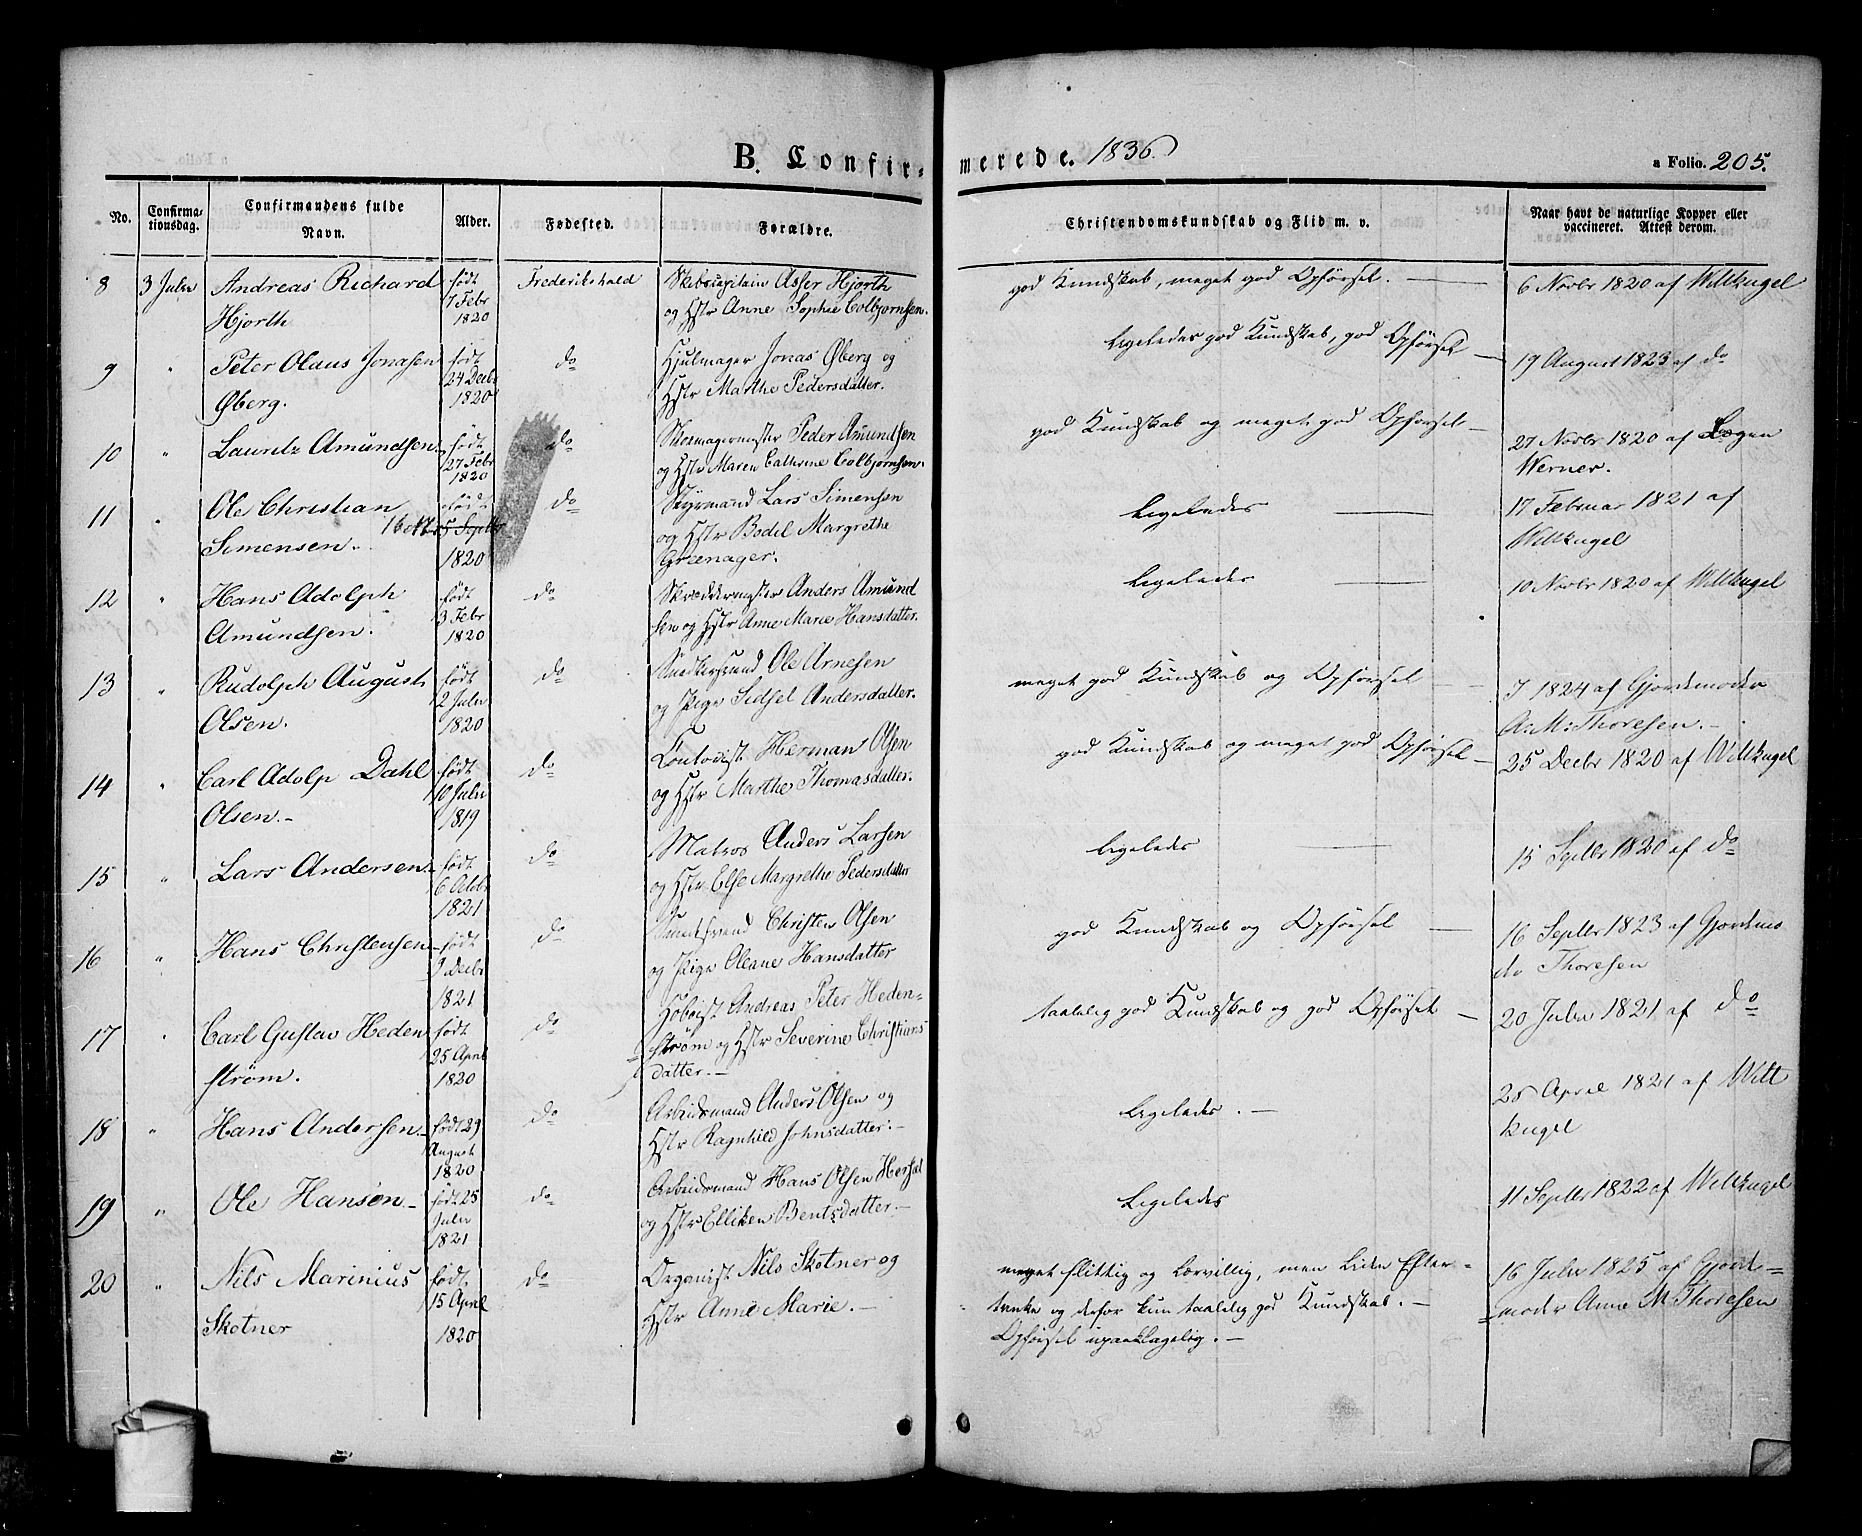 B. Confirmerede. 1836.
a Folio. 205.
No.
Confirmationsdag.
Confirmandens fulde Navn.
Alder.
Fødested.
Forældre.
Christendomskundskab og Flid m. v.
Naar havt de naturlige Kopper eller vaccineret. Attest derom.
8 3 Julii Andreas Richard Hjorth født 7 Febr 1820 Frederikshald Skibscapitain Asser Hjorth og Hstr Anne Sophie Colbjørnsen. god Kundskab, meget god Opførsel. — 6 Novbr 1820 af Wiltkugel
9 " Peter Olaus Jonasen Øberg. født 24 Decbr 1820 do Hjulmager Jonas Øberg og Hstr Marthe Pedersdatter. Ligeledes god Kundskab, god Opførsel — 19 August 1823 af do
10 " Lauritz Amundsen født 27 Febr 1820 do Skomagermester Peder Amundsen og Hstr Maren Cathrine Colbjørnsen. god Kundskab og meget god Opførsel — 27 Novbr 1820 af Lægen Werner.
11 " Ole Christian Simensen. født 16 5 Septbr 1820 do Styrmand Lars Simensen og Hstr Bodel Margrethe Grænager. Ligeledes — 17 Februar 1821 af Wiltkugel
12 " Hans Adolph Amundsen. født 3 Febr 1820 do Skræddermester Anders Amundsen og Hstr Anne Marie Hansdatter. Ligeledes — 10 Novbr 1820 af Wiltkugel
13 " Rudolph August Olsen. født 2 Julii 1820 do Ole Arnesen og Pige Sidsel Andersdatter. meget god Kundskab og Opførsel — 1824 af Gjordemoder A. M. Thoresen. —
14 " Carl Adolp Dahl Olsen. — født 10 Julii 1819 do Herman Olsen og Hstr Marthe Thomasdatter. god Kundskab og meget god Opførsel — 25 Decbr 1820 af Wiltkugel
15 " Lars Andersen født 6 Octbr 1821 do Matros Anders Larsen og Hstr Else Margrethe Pedersdatter ligeledes — 15 Septbr 1820 af do
16 " Hans Christensen født 9 Decbr 1821 do Christen Olsen og Pige Oleane Hansdatter god Kundskab og Opførsel — 16 Septbr 1823 af Gjordemo dr Thoresen
17 " Carl Gustav Heden strøm. født 25 April 1820 do Hoboist Andreas Peter Heden= strøm og Hstr Severine Christians datter. — taalelig god Kundskab og god Opførsel — 20 Julii 1821 af do
18 " Hans Andersen født 29 August 1820 do Arbeidsmand Anders Olsen og Hstr Ragnhild Johnsdatter. — Ligeledes. — 25 April 1821 af Wilt kugel
19 " Ole Hansen — født 25 Julii 1821 do Arbeidsmand Hans Olsen og Hstr Elliken Bentsdatter — Ligeledes 11 Septbr 1822 af Wiltkugel
20 " Nils Marinius Skotner født 15 April 1820 do Organist Nils Skotner og Hstr Anne Marie. — meget flittig og lærvillig, men liden Efter= tanke og derfor kun taalelig god Kundskab. — Opførsel upaaklagelig. — 16 Julii 1825 af Gjorde= moder Anne M. Thoresen